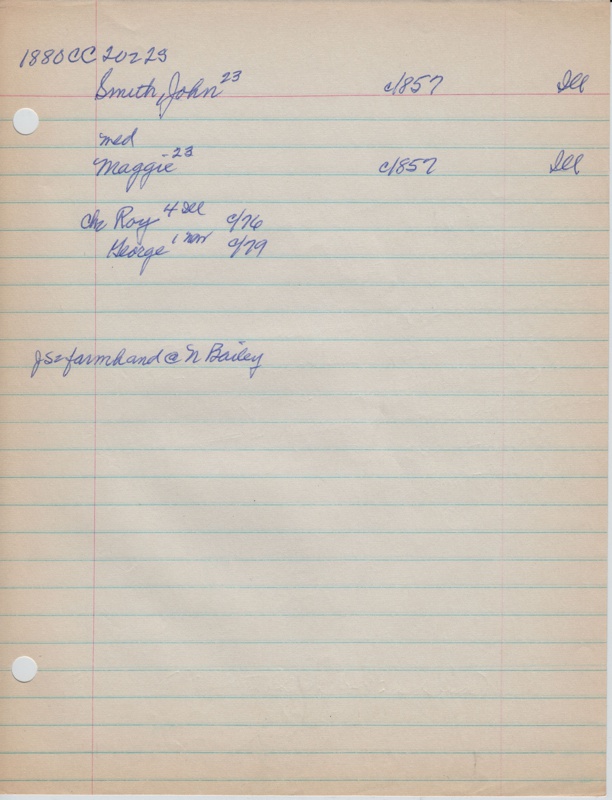 1880CC 20=23
Smith, John 23 c/857 Ill
med
Maggie 23 c/857 Ill
Ch= Roy 4 Ill c/76
George 1 c/79
JS=farmhand @ N Bailey